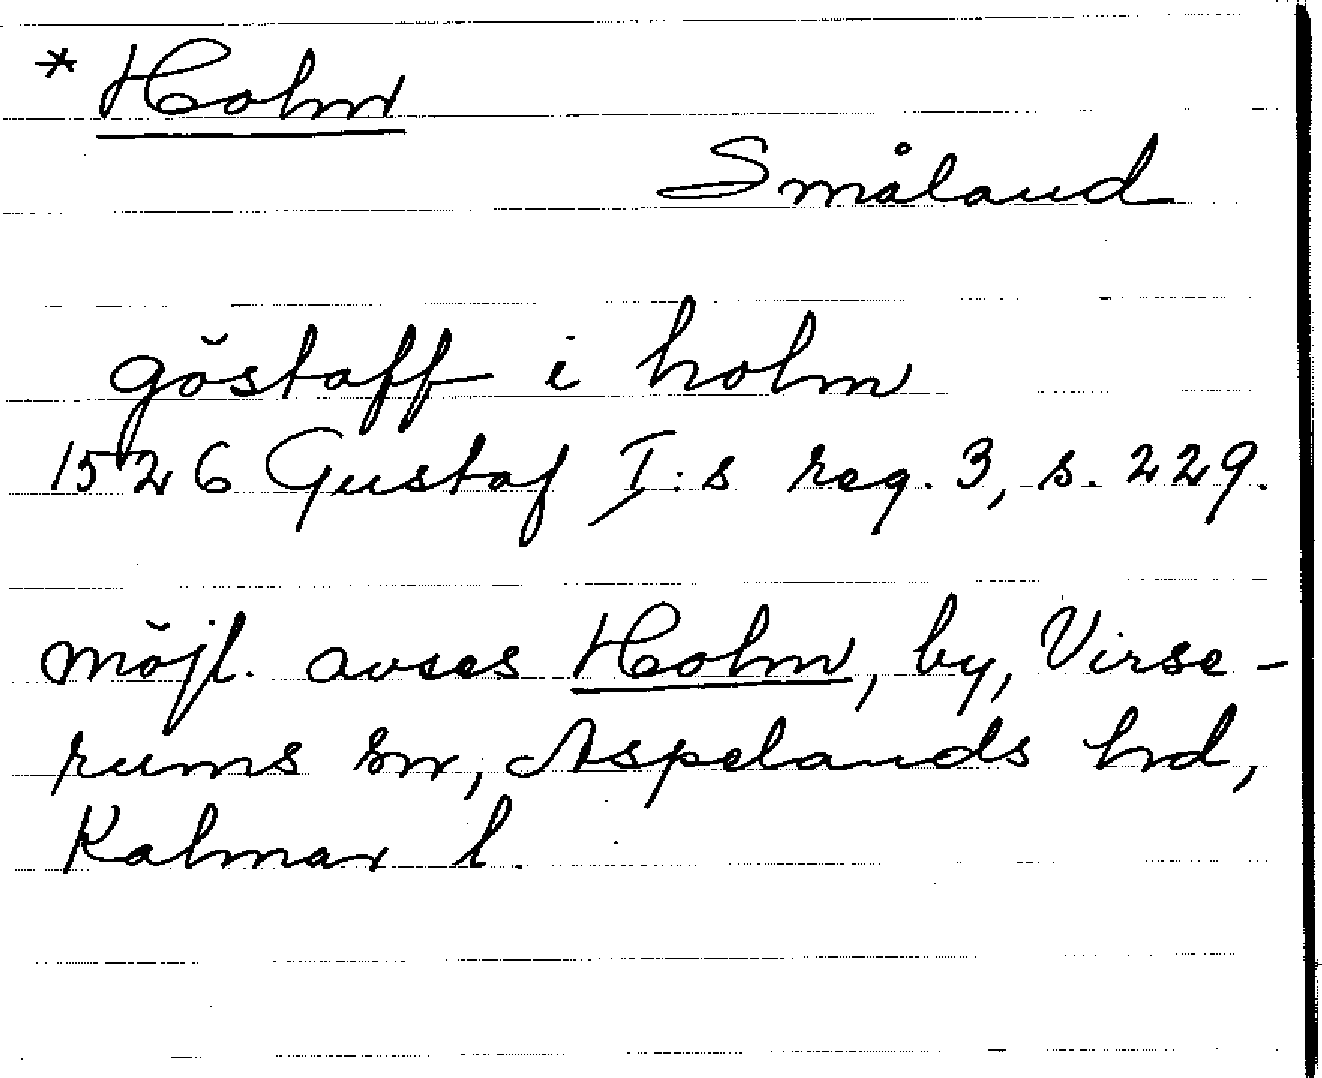 * Holm
Småland
göstaff i holm
1526 Gustaf I:s reg. 3, s. 229.
möjl. avses Holm, by, Virse-
rums sn, Aspelands hd,
Kalmar l.